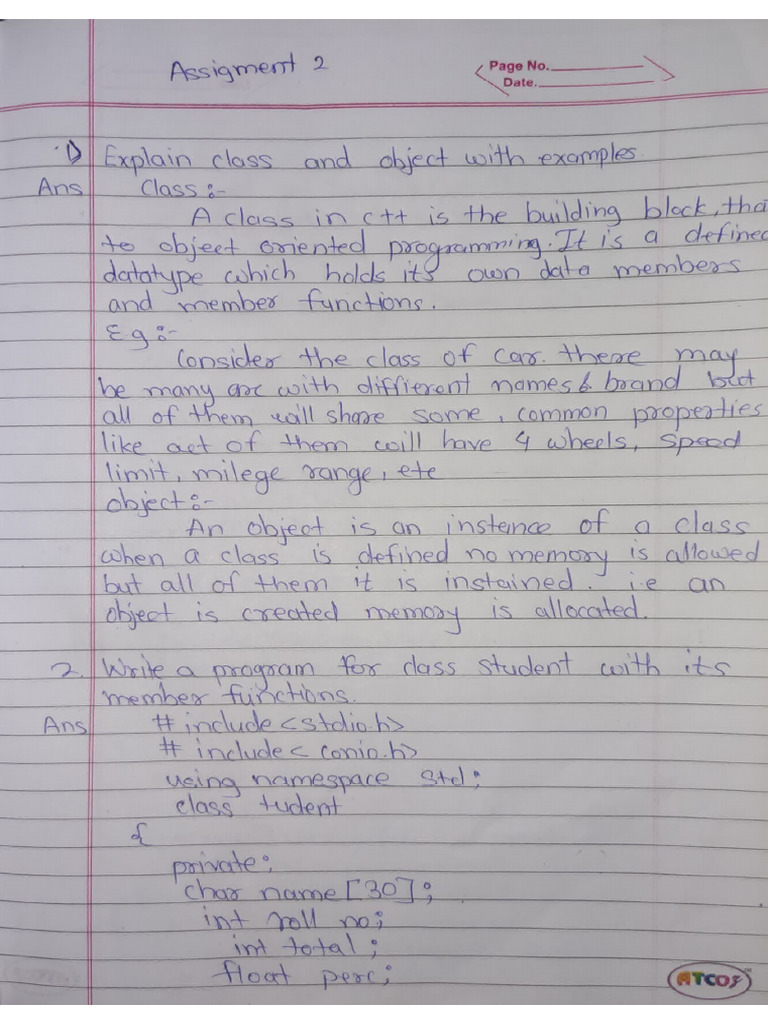 Assigment 2
Page No.
Date.
1) Explain class and object with examples.
Ans Class :-
A class in c++ is the building block, tha
to object oriented programming. It is a define
datatype which holds its own data members
and member functions.
Eg :-
Consider the class of car. there may
be many arc with diffierent names & brand but
all of them will share some, common properties
like act of them will have 4 wheels, speed
limit, milege range, etc
object :-
An object is an instence of a class
when a class is defined no memory is allowed
but all of them it is instained. i.e an
object is created memory is allocated.
2. Write a program for class student with its
member functions.
Ans # include <stdio.h>
# include < conio.h>
using namespace std;
class tudent
{
private;
char name [30];
int roll no;
int total;
float perc;
ATCOS